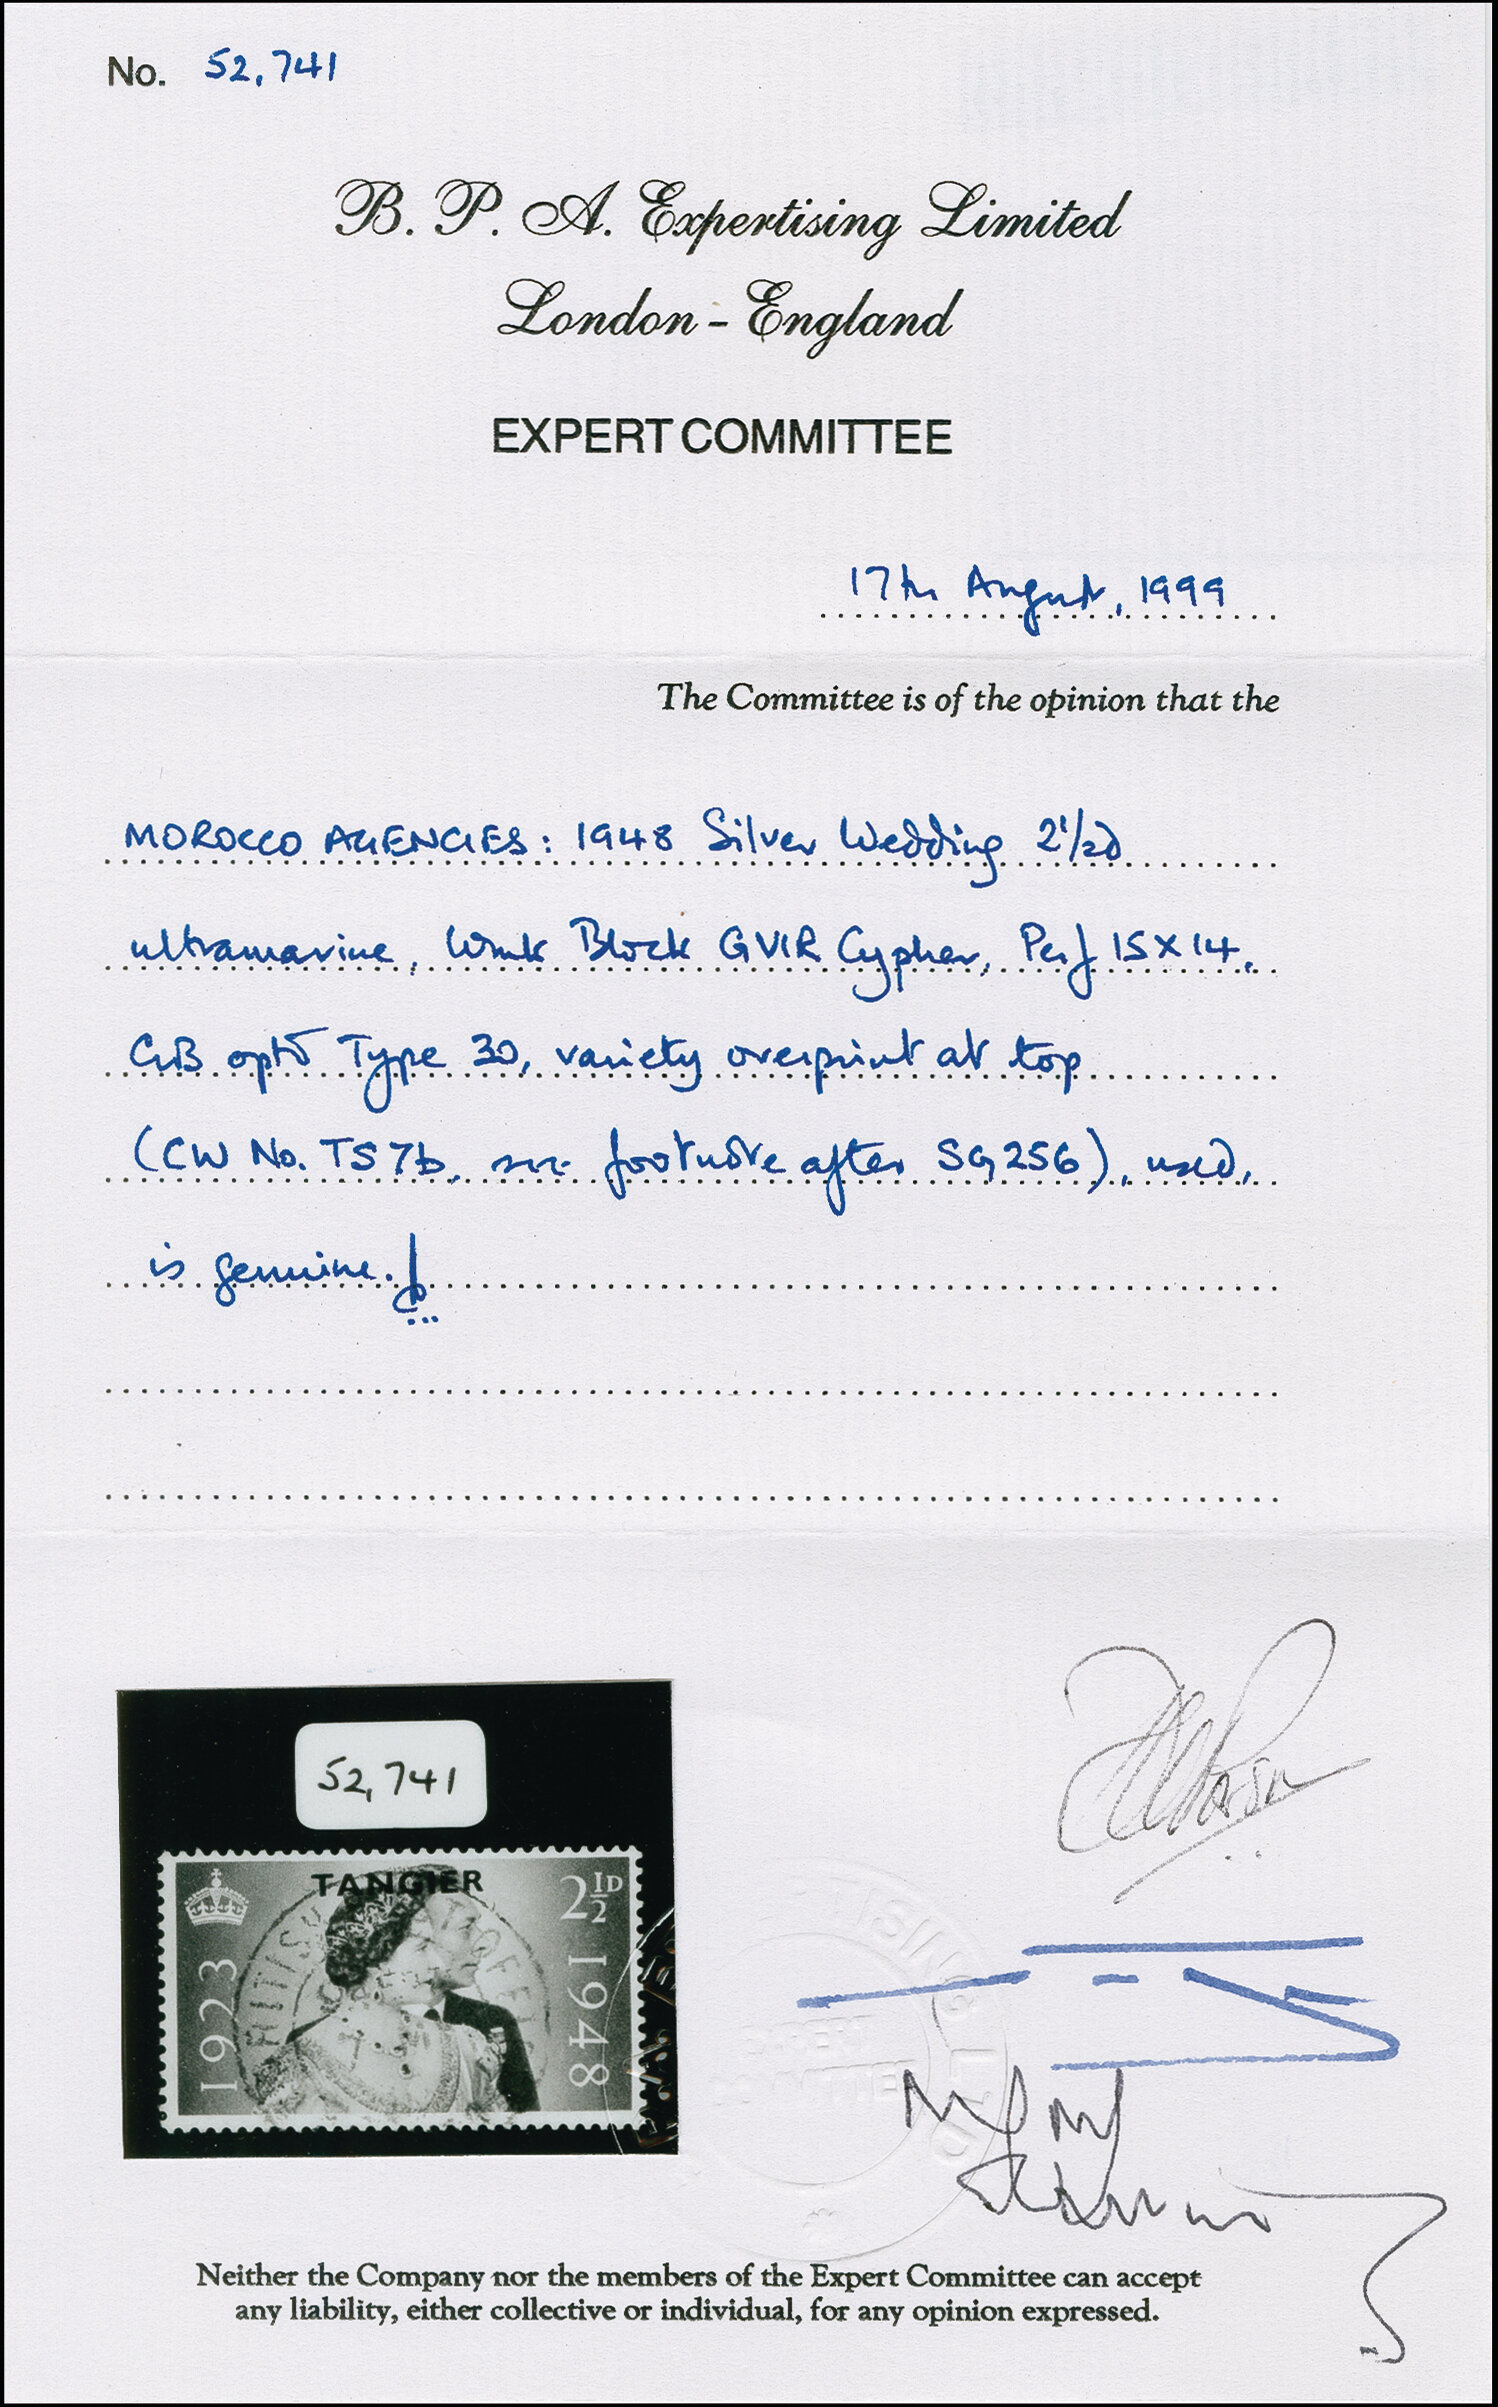 No. 52,741
B. P. A. Expertising Limited
London - England
EXPERT COMMITTEE
17th August, 1999
The Committee is of the opinion that the
MOROCCO AGENCIES: 1948 Silver Wedding 2½d
ultramarine, Wmk Block GVIR Cypher, Perf 15X14,
GB optd Type 30, variety overprint at top
(CW No. TS7b, see footnote after SG256), used,
is genuine.
52,741
TANGIER
2½D
1923
1948
BRITISH POST OFFICE
EXPERTISING LTD
EXPERT
COMMITTEE
Neither the Company nor the members of the Expert Committee can accept
any liability, either collective or individual, for any opinion expressed.